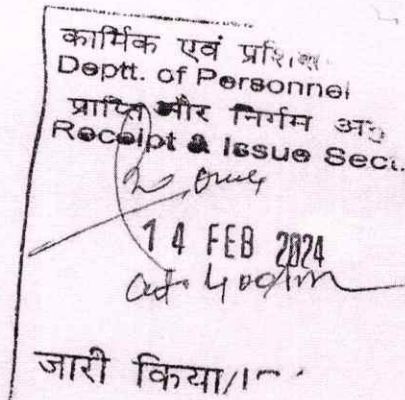 कार्मिक एवं प्रशि
Deptt. of Personnel
प्राप्ति और निर्गम अ
Receipt & Issue Sect.
14 FEB 2024
at 4
जारी किया/